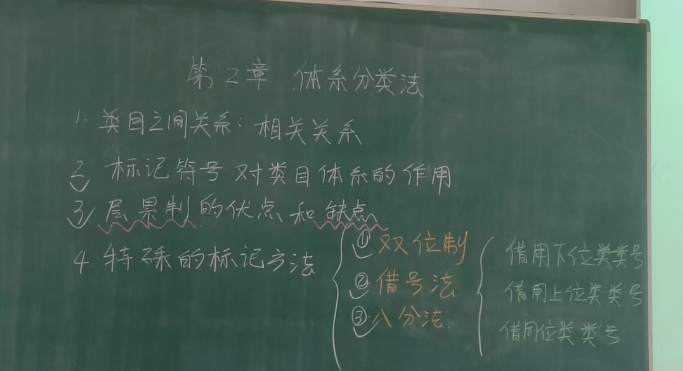 第2章 体系分类法
1. 类目之间关系：相关关系
2 标记符号对类目体系的作用
3 层累制的优点和缺点
4 特殊的标记方法
① 双位制
② 借号法
③ 八分法
借用下位类类号
借用上位类类号
借用位类类号